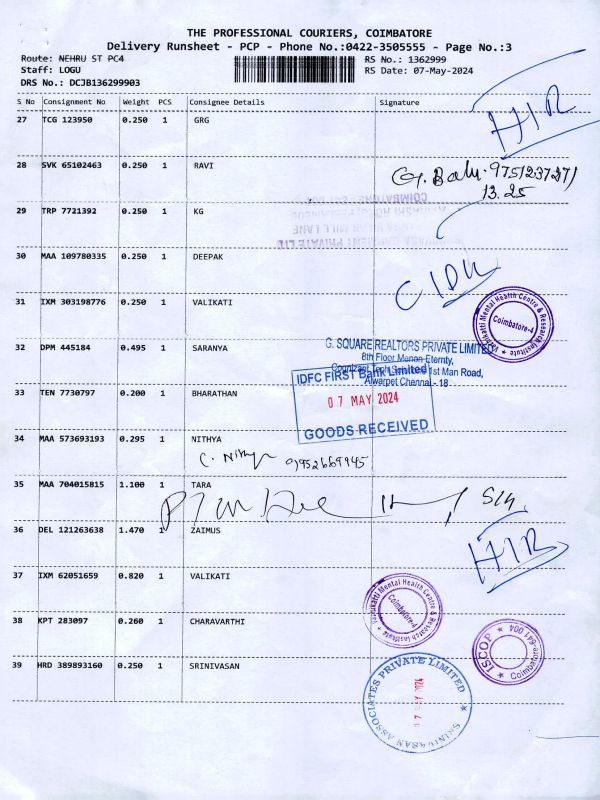 THE PROFESSIONAL COURIERS, COIMBATORE
Delivery Runsheet - PCP - Phone No.:0422-3505555 - Page No.:3
Route: NEHRU ST PC4
RS No.: 1362999
Staff: LOGU
RS Date: 07-May-2024
DRS No.: DCJB136299903
S No Consignment No Weight PCS Consignee Details Signature
27 TCG 123950 0.250 1 GRG
28 SVK 65102463 0.250 1 RAVI
13.25
29 TRP 7721392 0.250 1 KG
30 MAA 109780335 0.250 1 DEEPAK
31 IXM 303198776 0.250 1 VALIKATI
Coimbatore-4
32 DPM 445184 0.495 1 SARANYA
G. SQUARE REALTORS PRIVATE LIMITED
8th Floor Menon Eternity,
1st Man Road,
Alwarpet Chennai - 18
33 TEN 7730797 0.200 1 BHARATHAN
IDFC FIRST Bank Limited
07 MAY 2024
GOODS RECEIVED
34 MAA 573693193 0.295 1 NITHYA
C. Nithya 9952669945
35 MAA 704015815 1.100 1 TARA
36 DEL 121263638 1.470 1 ZAIMUS
37 IXM 62051659 0.820 1 VALIKATI
Mental Health Centre & Research Institute
Coimbatore-4
38 KPT 283097 0.260 1 CHARAVARTHI
ISCOP
Coimbatore-641 004
39 HRD 389893160 0.250 1 SRINIVASAN
SRINIVASAN ASSOCIATES PRIVATE LIMITED